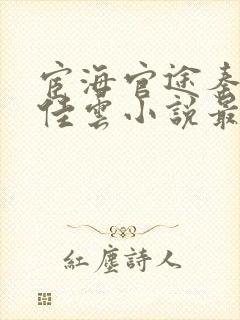 宦海官途秦
佳雲小説最
紅塵詩人